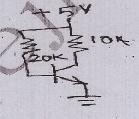 +5V
10K
20K